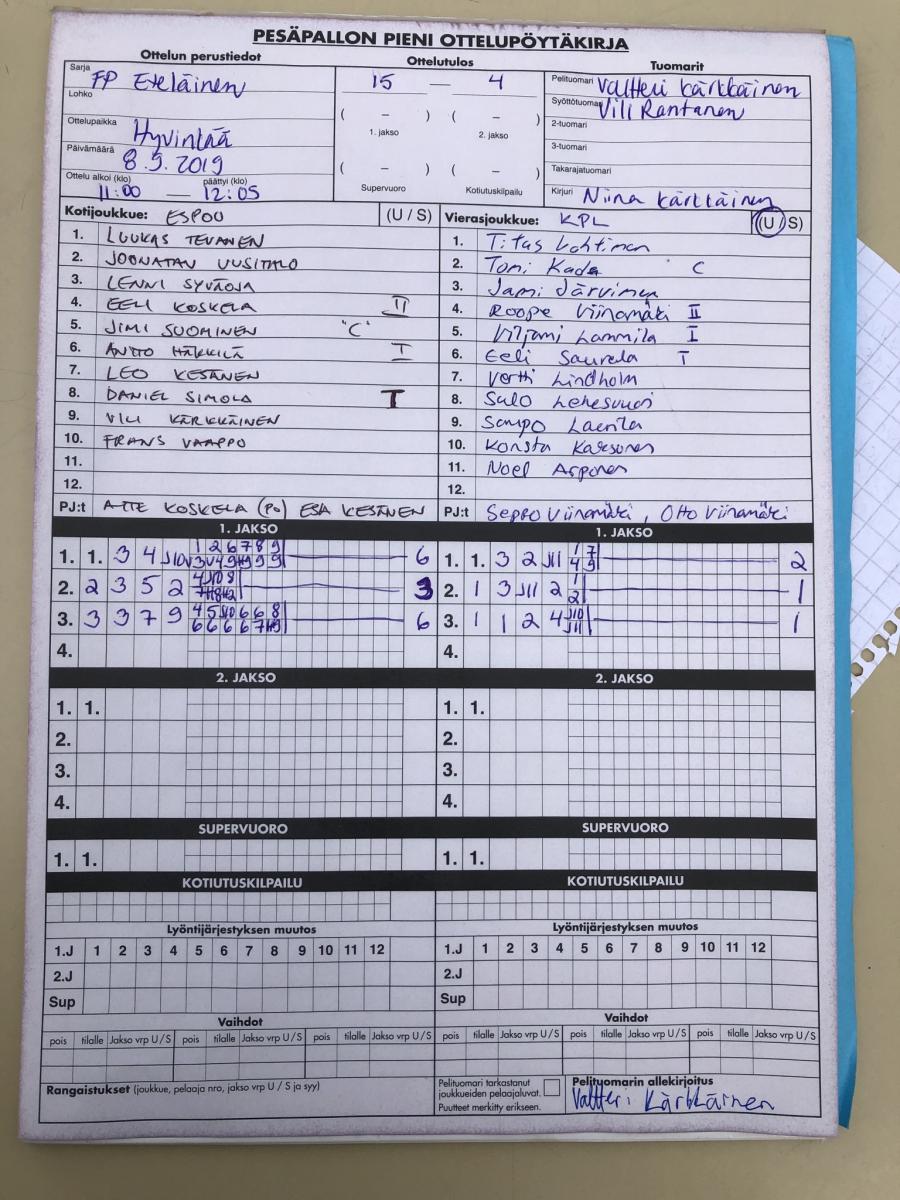 PESÄPALLON PIENI OTTELUPÖYTÄKIRJA
Ottelun perustiedot
Ottelutulos
Tuomarit
Sarja FP Eteläinen
Lohko
Ottelupaikka Hyvinkää
Päivämäärä 8.9.2019
Ottelu alkoi (klo) päättyi (klo)
11:00 — 12:05
15 — 4
( – ) ( – )
1. jakso 2. jakso
( – ) ( – )
Supervuoro Kotiutuskilpailu
Pelituomari Valtteri Kärkkäinen
Syöttötuomari Vili Rantanen
2-tuomari
3-tuomari
Takarajatuomari
Kirjuri Niina Kärkkäinen
Kotijoukkue: ESPOO (U / S)
1. LUUKAS TEVANEN
2. JOONATAN UUSITALO
3. LENNI SYVÄOJA
4. EELI KOSKELA II
5. JIMI SUOMINEN "C"
6. ANTTO HÄKKILÄ I
7. LEO KESÄNEN
8. DANIEL SIMOLA T
9. VILI KÄRKKÄINEN
10. FRANS VAAPPO
11.
12.
PJ:t ATTE KOSKELA (PO) ESA KESÄNEN
Vierasjoukkue: KPL (U / S)
1. Titus Lohtinen
2. Tomi Kada C
3. Jami Järvinen
4. Roope Viinamäki II
5. Viljami Lammila I
6. Eeli Saurela T
7. Vertti Lindholm
8. Sulo Lehesvuori
9. Sampo Laerila
10. Konsta Karsonen
11. Noel Arponen
12.
PJ:t Seppo Viinamäki, Otto Viinamäki
1. JAKSO
1. 1. 3 4 J10 6
2. 2 3 5 2 3
3. 3 3 7 9 6
4.
1. JAKSO
1. 1. 3 2 J11 2
2. 1 3 J11 2 1
3. 1 1 2 4 1
4.
2. JAKSO
1. 1.
2.
3.
4.
2. JAKSO
1. 1.
2.
3.
4.
SUPERVUORO
1. 1.
SUPERVUORO
1. 1.
KOTIUTUSKILPAILU
KOTIUTUSKILPAILU
Lyöntijärjestyksen muutos
1.J 1 2 3 4 5 6 7 8 9 10 11 12
2.J
Sup
Lyöntijärjestyksen muutos
1.J 1 2 3 4 5 6 7 8 9 10 11 12
2.J
Sup
Vaihdot
pois tilalle Jakso vrp U / S pois tilalle Jakso vrp U / S pois tilalle Jakso vrp U / S
Vaihdot
pois tilalle Jakso vrp U / S pois tilalle Jakso vrp U / S pois tilalle Jakso vrp U / S
Rangaistukset (joukkue, pelaaja nro, jakso vrp U / S ja syy)
Pelituomari tarkastanut
joukkueiden pelaajaluvat.
Puutteet merkitty erikseen.
Pelituomarin allekirjoitus
Valtteri Kärkkäinen